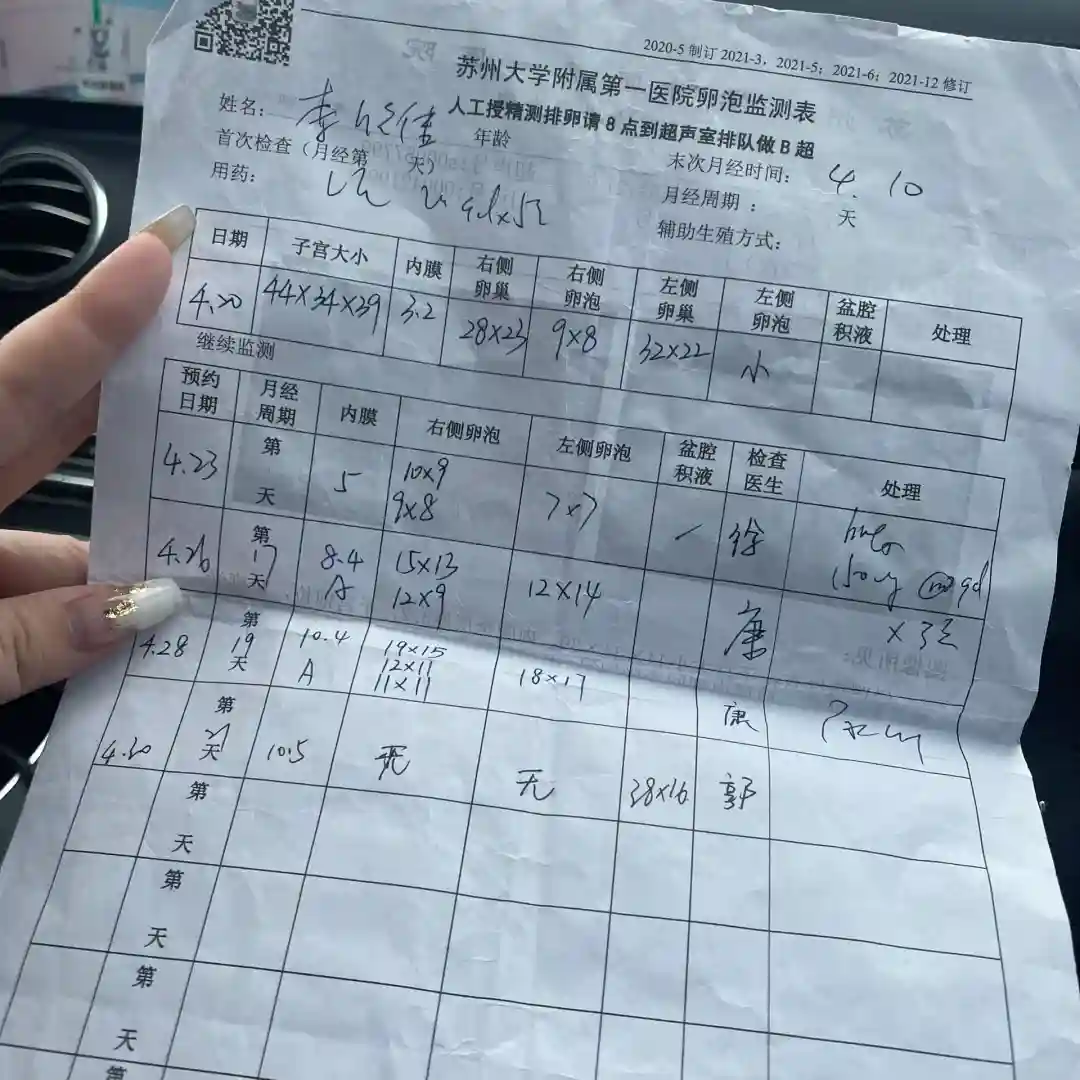 2020-5 制订 2021-3，2021-5；2021-6；2021-12 修订
苏州大学附属第一医院卵泡监测表
人工授精测排卵请 8 点到超声室排队做 B 超
姓名： 李 佳 年龄
首次检查（月经第 天） 末次月经时间： 4. 10
用药： qd×5天 月经周期： 天
辅助生殖方式：
日期 子宫大小 内膜 右侧卵巢 右侧卵泡 左侧卵巢 左侧卵泡 盆腔积液 处理
4.20 44×34×39 3.2 28×23 9×8 32×22 小
继续监测
预约日期 月经周期 内膜 右侧卵泡 左侧卵泡 盆腔积液 检查医生 处理
4.23 第 天 5 10×9 9×8 7×7 / 徐 hmg 150 qd ×3天
4.26 第 17 天 8.4 A 15×13 12×9 12×14 康
4.28 第 19 天 10.4 A 19×15 12×11 11×11 18×17 康
4.30 第 21 天 10.5 无 无 38×16 郭
第 天
第 天
第 天
第